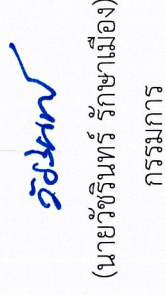 วัชรินทร์
(นายวัชรินทร์ รักษาเมือง)
กรรมการ